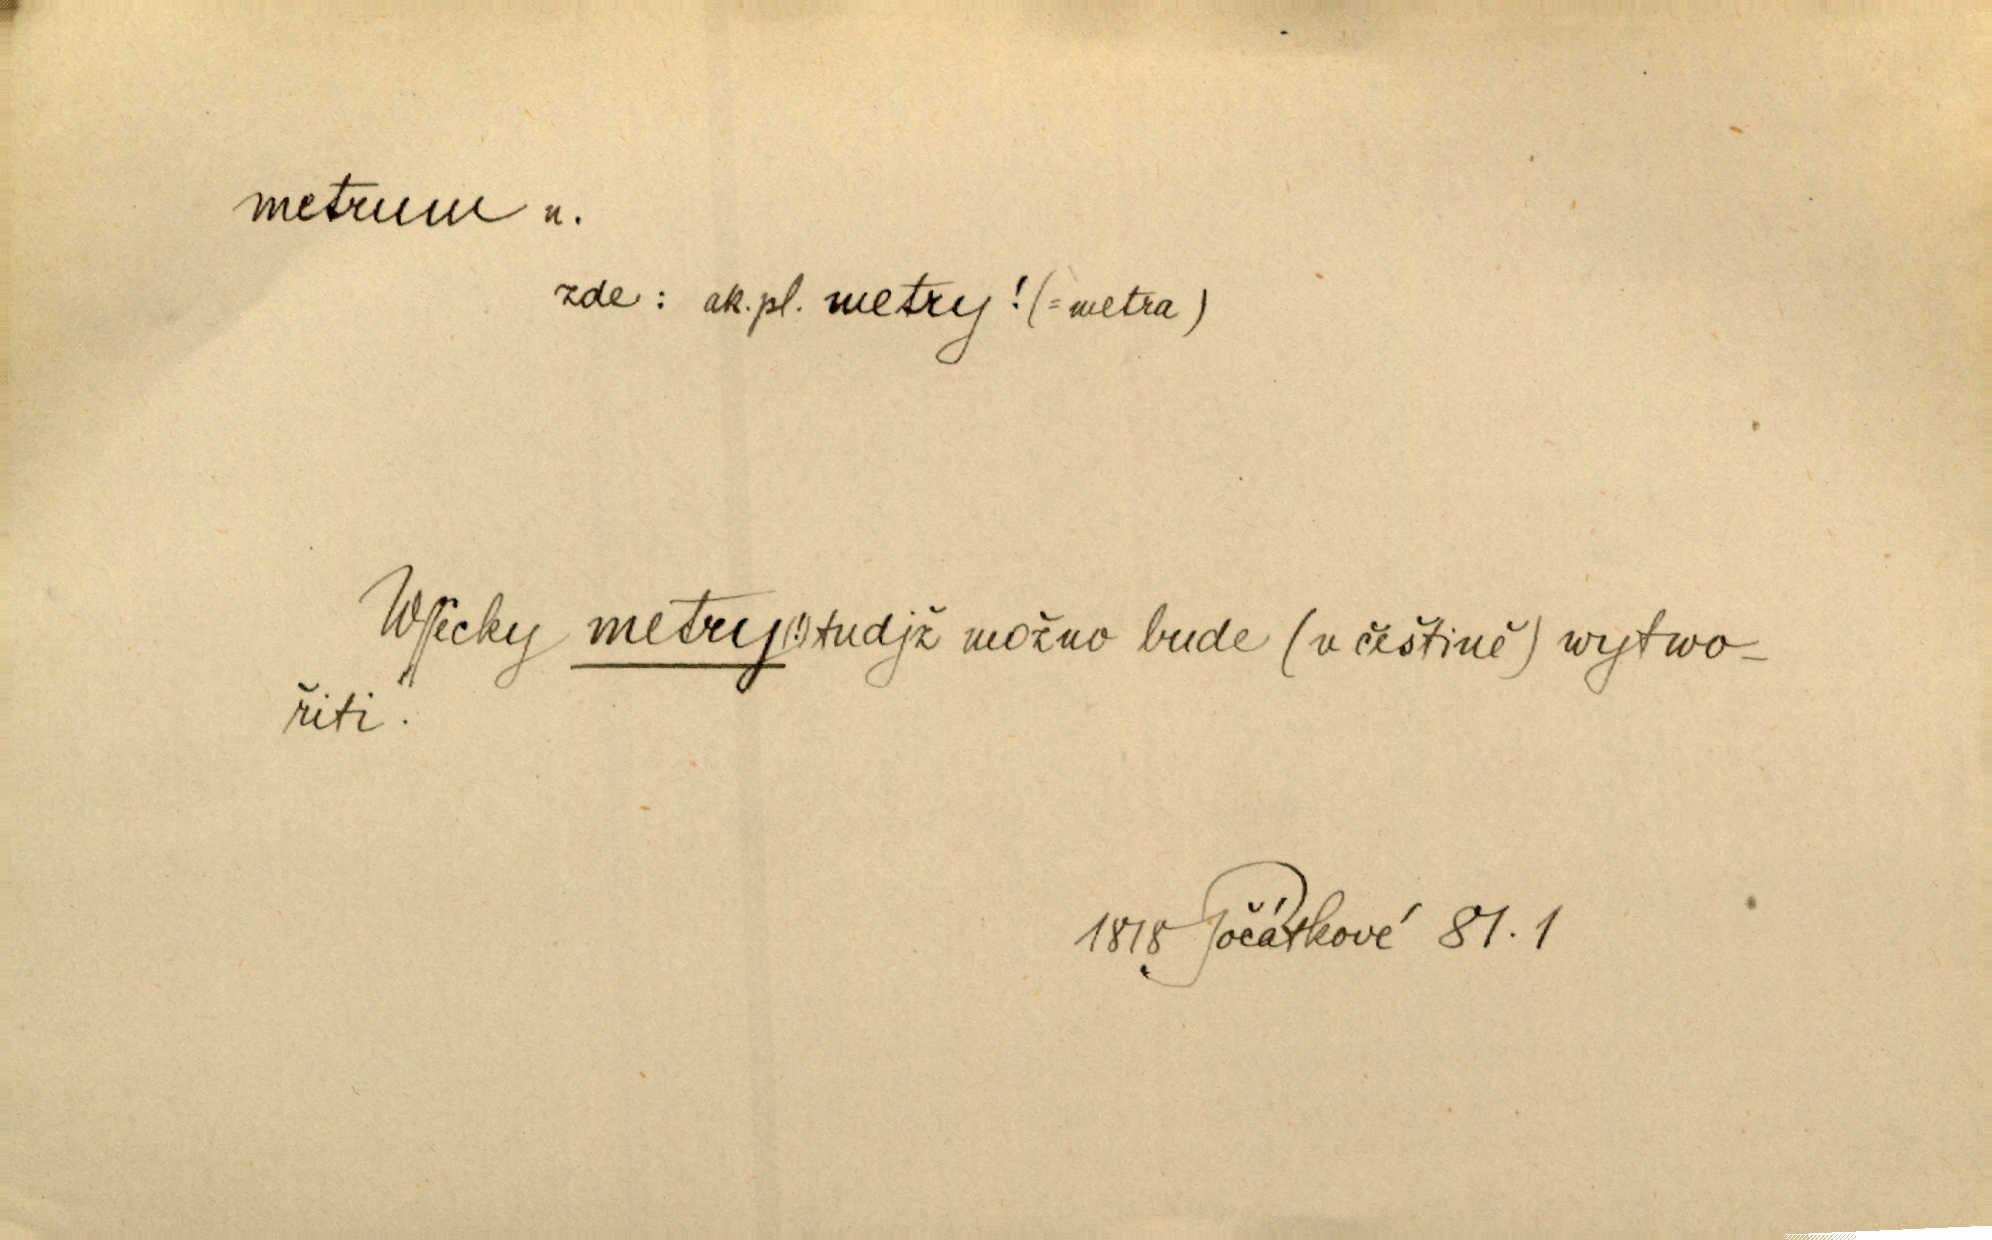 metrum n.
zde: ak. pl. metry! (= metra)
Wſſecky metry(!) tudjž možno bude (v češtině) wytwo-
řiti.
1818 Počátkové 81. 1